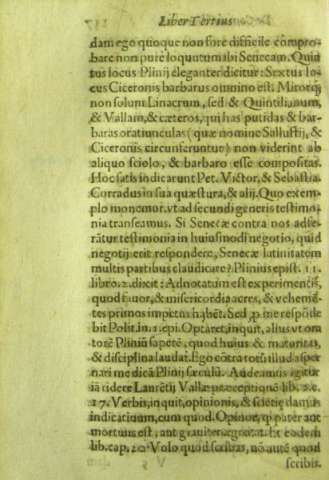 Liber Tertius
dam ego quoque non fore difficile compro-
bare non pure loquutum abi Senecam. Quin
tus locus Plinij eleganter dicitur: Sextus lo-
cus Ciceronis barbarus omnino est. Mirorq́;
non solum Linacrum, sed & Quintilianum,
& Vallam, & cæteros, qui has putidas & bar-
baras oratiunculas (quæ nomine Sallustij, &
Ciceronis circunferuntur) non viderint ab
aliquo sciolo, & barbaro esse compositas.
Hoc satis indicarunt Pet. Victor, & Sebastia.
Corradus in sua quæstura, & alij. Quo exem-
plo monemur, vt ad secundi generis testimo-
nia transeamus. Si Senecæ contra nos adse-
rātur testimonia in huiusmodi negotio, quid
negotij erit respondere, Senecæ latinitatem
multis partibus claudicare? Plinius epist. 11.
libro. 2. dixit: Adnotatum est experimentis,
quod fauor, & misericordia acres, & vehemē-
tes primos impetus habēt. Sed
bit Polit. in. 1. epi. Optaret, inquit, alius vt ora
torē Pliniū sapetē, quod huius & maturitas,
& disciplina laudat. Ego cōtra totū illud asper
nari me dicā Plinij sæculū. Audeamus igitur
iā ridere Laurētij Vallæ præceptionē lib. 2. c.
17. Verbis, inquit, opinionis, & sciētię damus
indicatiuum, cum quod. Opinor, q pater aut
mortuus est, aut grauiter ægrotat. Et eodem
lib. cap. 20. Volo quod scribas, nō autē quod
scribis.